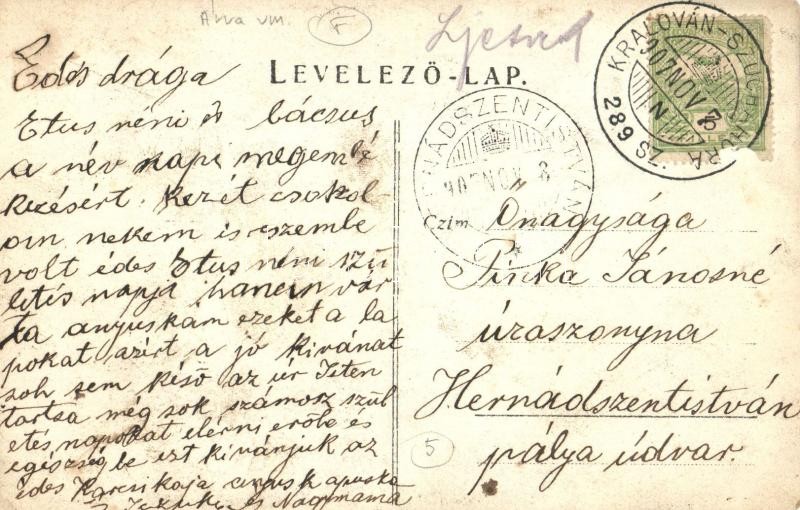 Árva vm.
LEVELEZŐ-LAP.
KRALOVÁN-SZUCHAHORA
907 NOV
N
289 SZ.
HERNÁDSZENTISTVÁN
907 NOV 8
Czim
Édes drága
Etus néni és bácsus
a név napi megemlé
kezésért. kezét csokol
om nekem is eszembe
volt édes Etus néni szü
letés napja hanem vár
ta anyuskám ezeket a la
pokat azért a jó kivánat
soh sem késő az úr Isten
tartsa még sok számosz szül
etés napokat elérni erőbe és
egiszségbe ezt kivánjuk az
édes Karcsikája anyus kapuska
és Nagymama
Ő nagysága
Pinka Jánosné
úraszonyna
Hernádszentistván
pálya údvar.
5